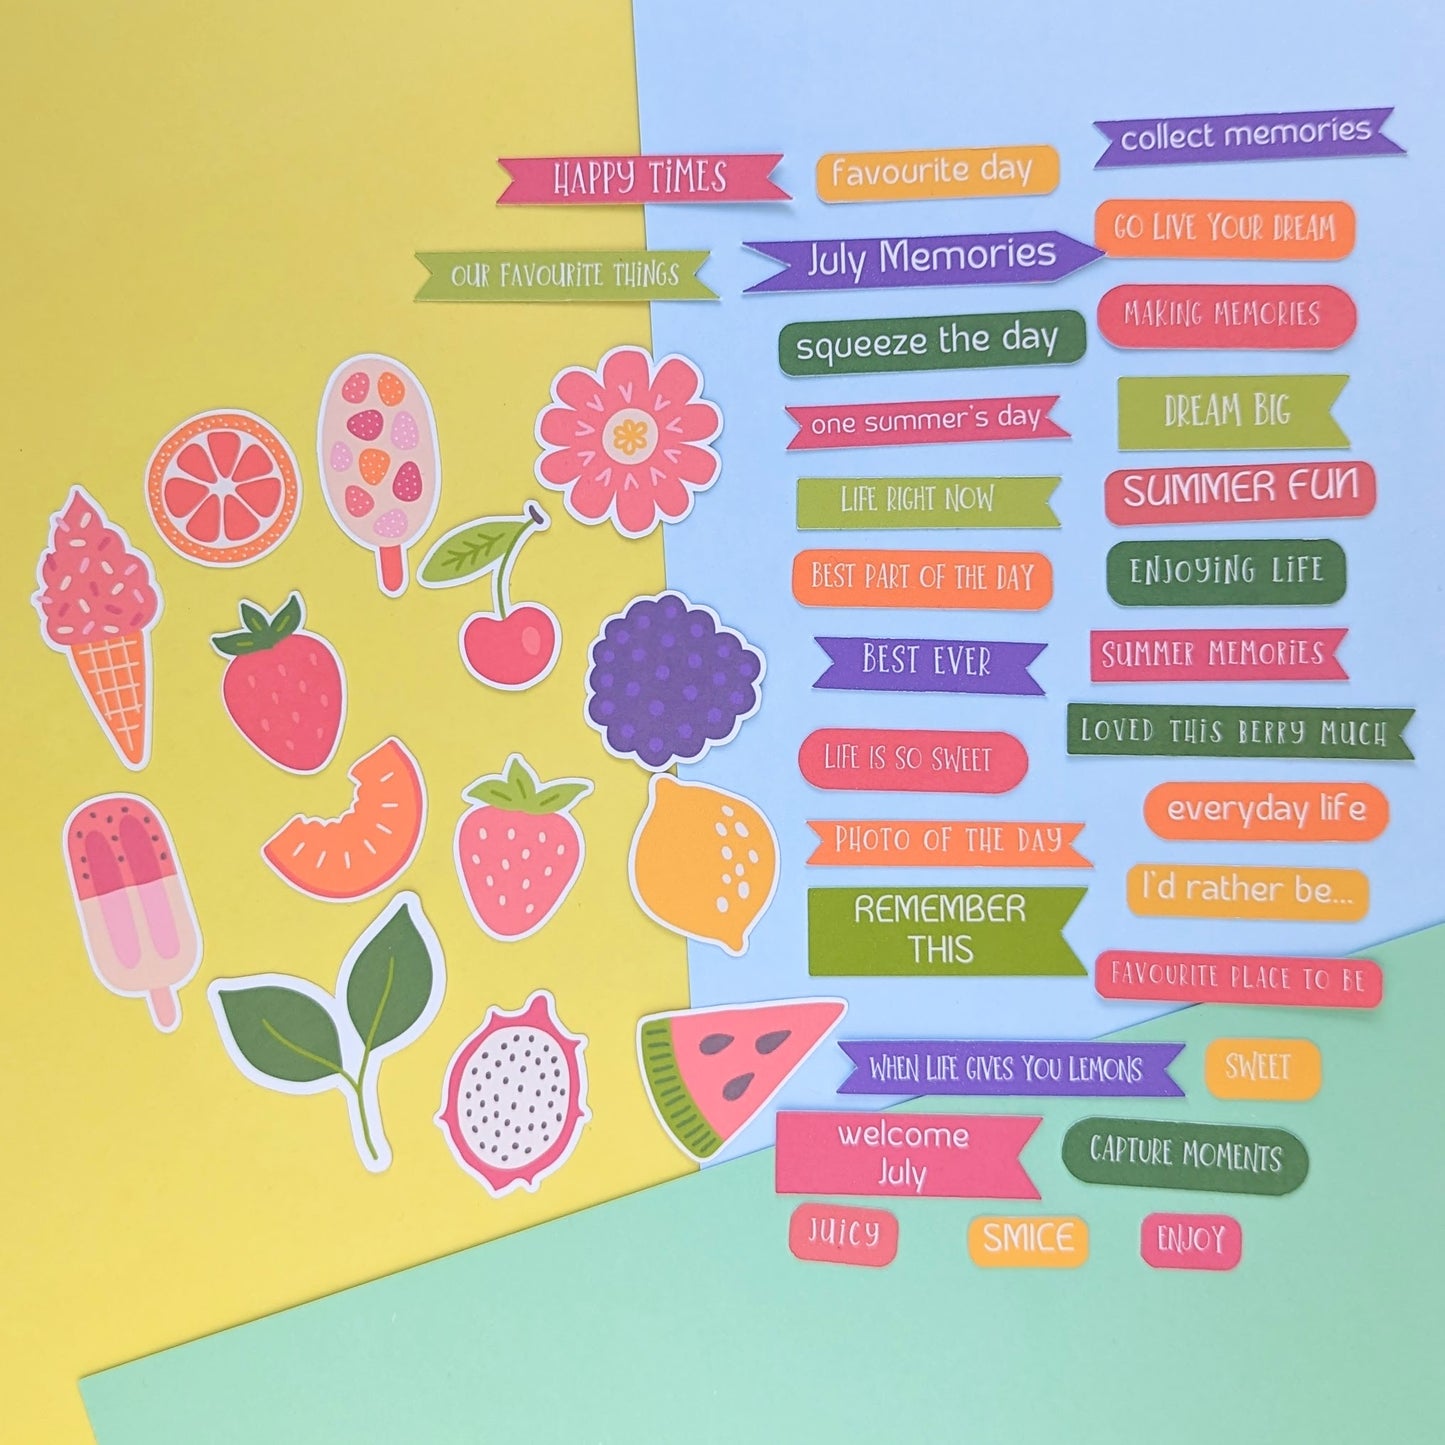 HAPPY TiMES
favourite day
collect memories
OUR FAVOURITE THINGS
July Memories
GO LIVE YOUR DREAM
squeeze the day
MAKING MEMORIES
one summer's day
DREAM BIG
LIFE RIGHT NOW
SUMMER FUN
BEST PART OF THE DAY
ENJOYiNG LiFE
BEST EVER
SUMMER MEMORiES
LIFE IS SO SWEET
LOVED THiS BERRY MUCH
PHOTO OF THE DAY
everyday life
REMEMBER
THIS
I'd rather be...
FAVOURITE PLACE TO BE
WHEN LIFE GIVES YOU LEMONS
SWEET
welcome
July
CAPTURE MOMENTS
JUiCY
SMICE
ENJOY